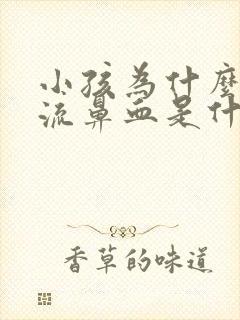 小孩為什麼
流鼻血是什
香草的味道